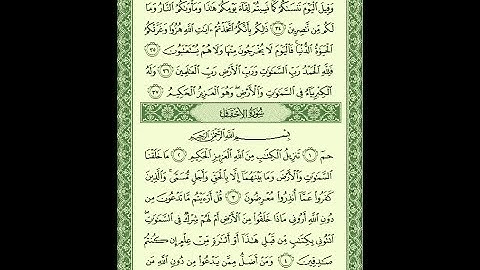 وَقِيلَ ٱلْيَوْمَ نَنسَىٰكُمْ كَمَا نَسِيتُمْ لِقَآءَ يَوْمِكُمْ هَٰذَا وَمَأْوَىٰكُمُ ٱلنَّارُ وَمَا
لَكُم مِّن نَّٰصِرِينَ ٣٤ ذَٰلِكُم بِأَنَّكُمُ ٱتَّخَذْتُمْ ءَايَٰتِ ٱللَّهِ هُزُوًا وَغَرَّتْكُمُ
ٱلْحَيَوٰةُ ٱلدُّنْيَا فَٱلْيَوْمَ لَا يُخْرَجُونَ مِنْهَا وَلَا هُمْ يُسْتَعْتَبُونَ ٣٥
فَلِلَّهِ ٱلْحَمْدُ رَبِّ ٱلسَّمَٰوَٰتِ وَرَبِّ ٱلْأَرْضِ رَبِّ ٱلْعَٰلَمِينَ ٣٦ وَلَهُ
ٱلْكِبْرِيَآءُ فِى ٱلسَّمَٰوَٰتِ وَٱلْأَرْضِ وَهُوَ ٱلْعَزِيزُ ٱلْحَكِيمُ ٣٧
سُورَةُ الأَحْقَافِ
بِسْمِ ٱللَّهِ ٱلرَّحْمَٰنِ ٱلرَّحِيمِ
حمٓ ١ تَنزِيلُ ٱلْكِتَٰبِ مِنَ ٱللَّهِ ٱلْعَزِيزِ ٱلْحَكِيمِ ٢ مَا خَلَقْنَا
ٱلسَّمَٰوَٰتِ وَٱلْأَرْضَ وَمَا بَيْنَهُمَآ إِلَّا بِٱلْحَقِّ وَأَجَلٍ مُّسَمًّى وَٱلَّذِينَ
كَفَرُوا۟ عَمَّآ أُنذِرُوا۟ مُعْرِضُونَ ٣ قُلْ أَرَءَيْتُم مَّا تَدْعُونَ مِن
دُونِ ٱللَّهِ أَرُونِى مَاذَا خَلَقُوا۟ مِنَ ٱلْأَرْضِ أَمْ لَهُمْ شِرْكٌ فِى ٱلسَّمَٰوَٰتِ
ٱئْتُونِى بِكِتَٰبٍ مِّن قَبْلِ هَٰذَآ أَوْ أَثَٰرَةٍ مِّنْ عِلْمٍ إِن كُنتُمْ
صَٰدِقِينَ ٤ وَمَنْ أَضَلُّ مِمَّن يَدْعُوا۟ مِن دُونِ ٱللَّهِ مَن